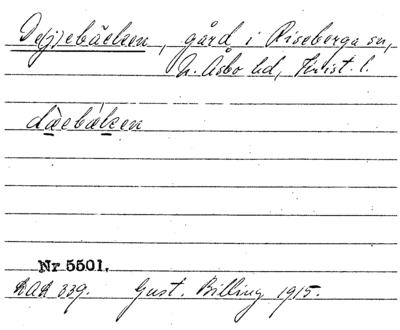 De(j)ebäcken, gård i Riseberga sn,
N. Åsbo hd, Krist. l.
dàebàken
Nr 5501.
LAL 339. Gust. Billing 1915.